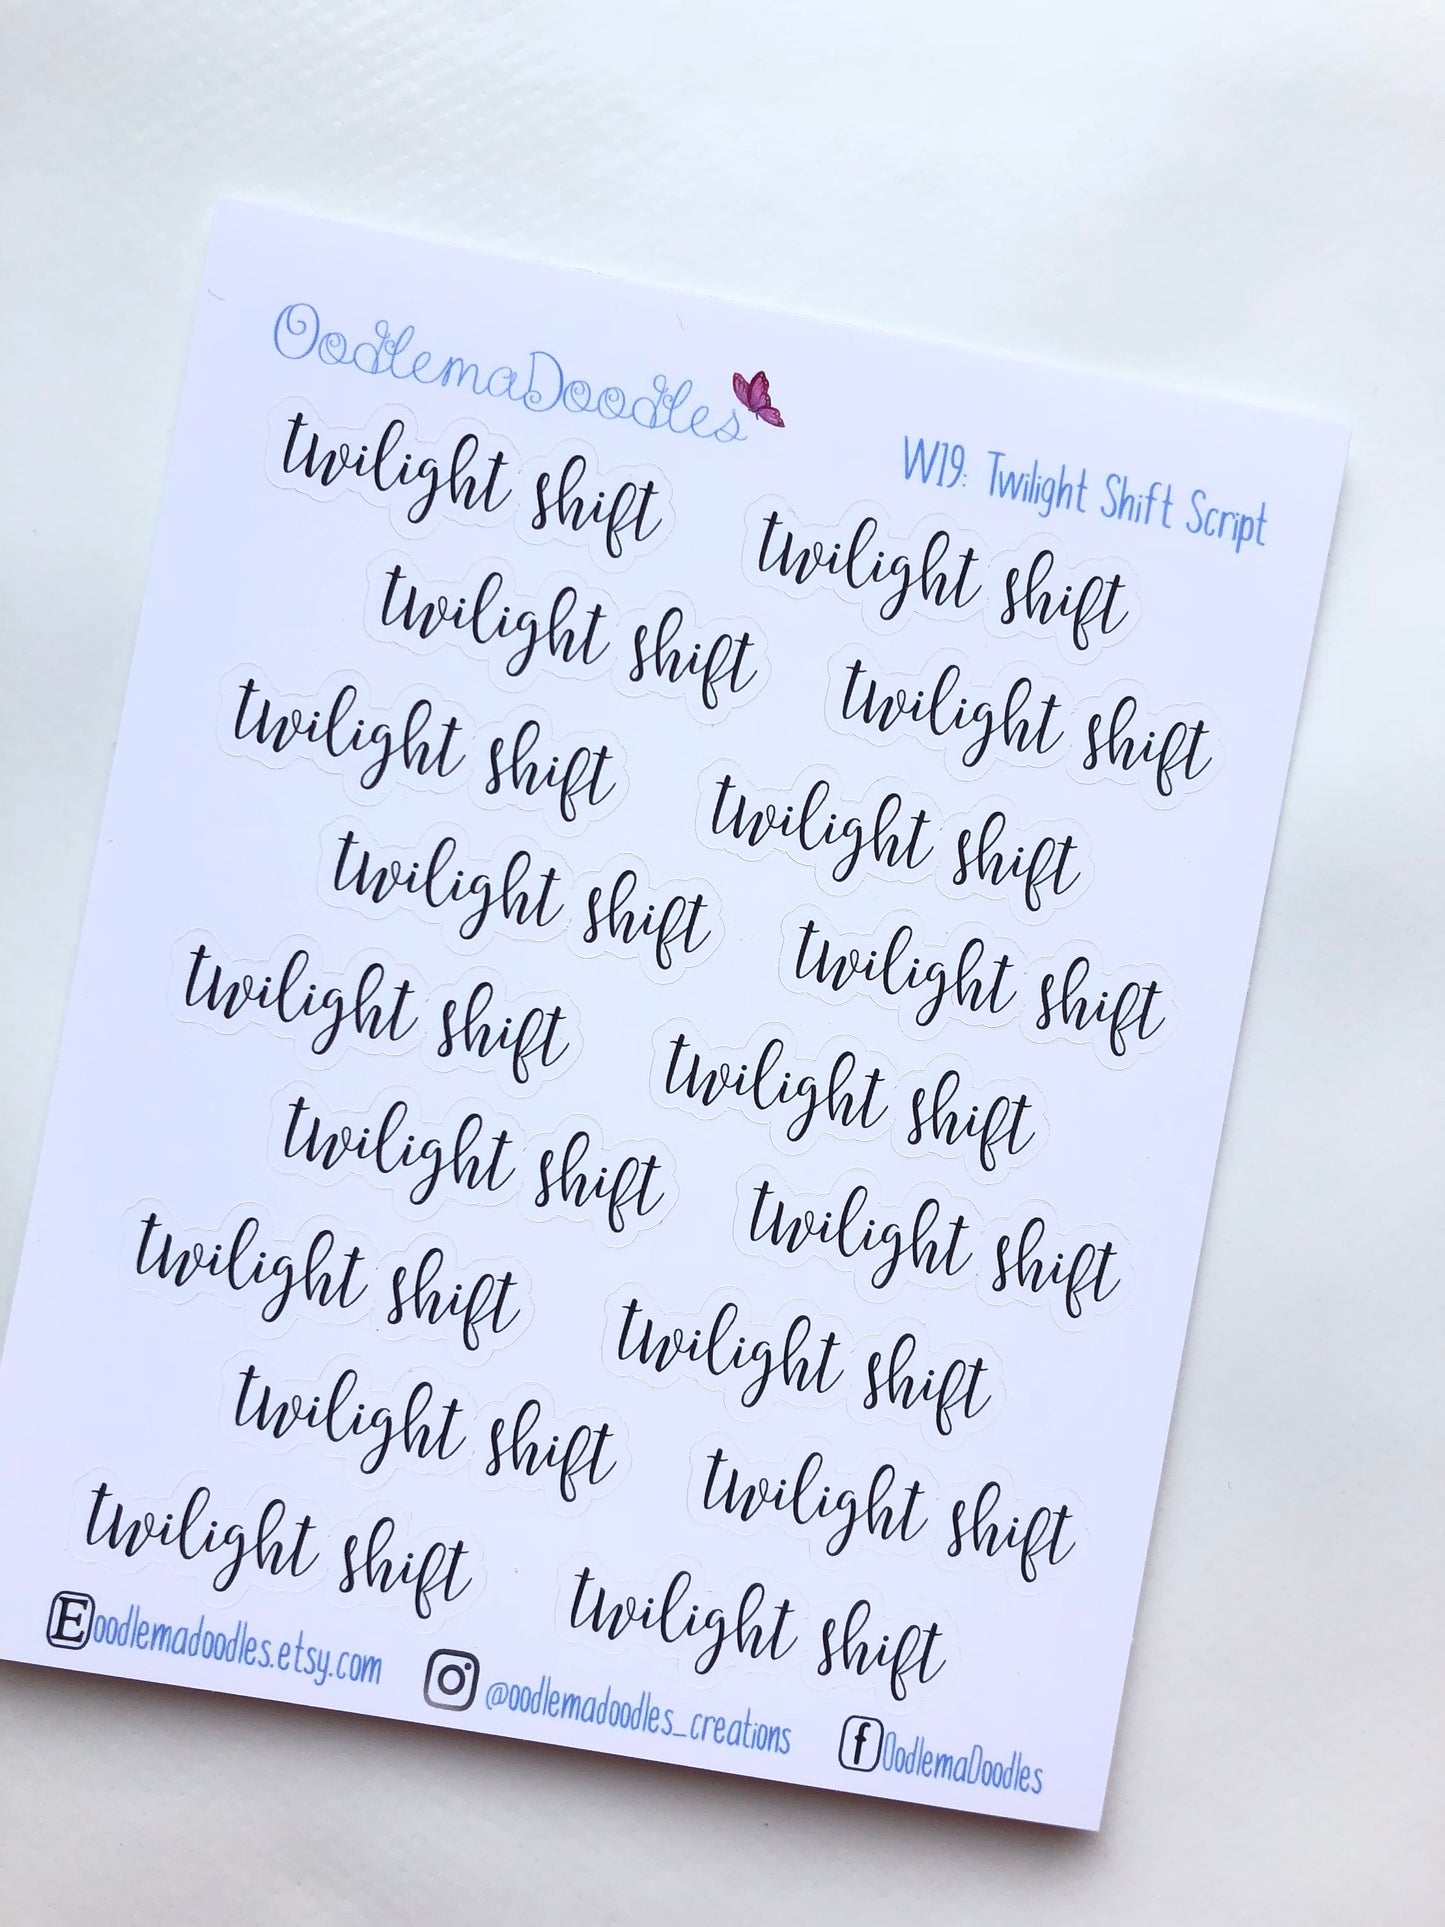 OodlemaDoodles
W19: Twilight Shift Script
twilight shift twilight shift
twilight shift twilight shift
twilight shift twilight shift
twilight shift twilight shift
twilight shift twilight shift
twilight shift twilight shift
twilight shift twilight shift
twilight shift twilight shift
twilight shift twilight shift
E oodlemadoodles.etsy.com @oodlemadoodles_creations f OodlemaDoodles